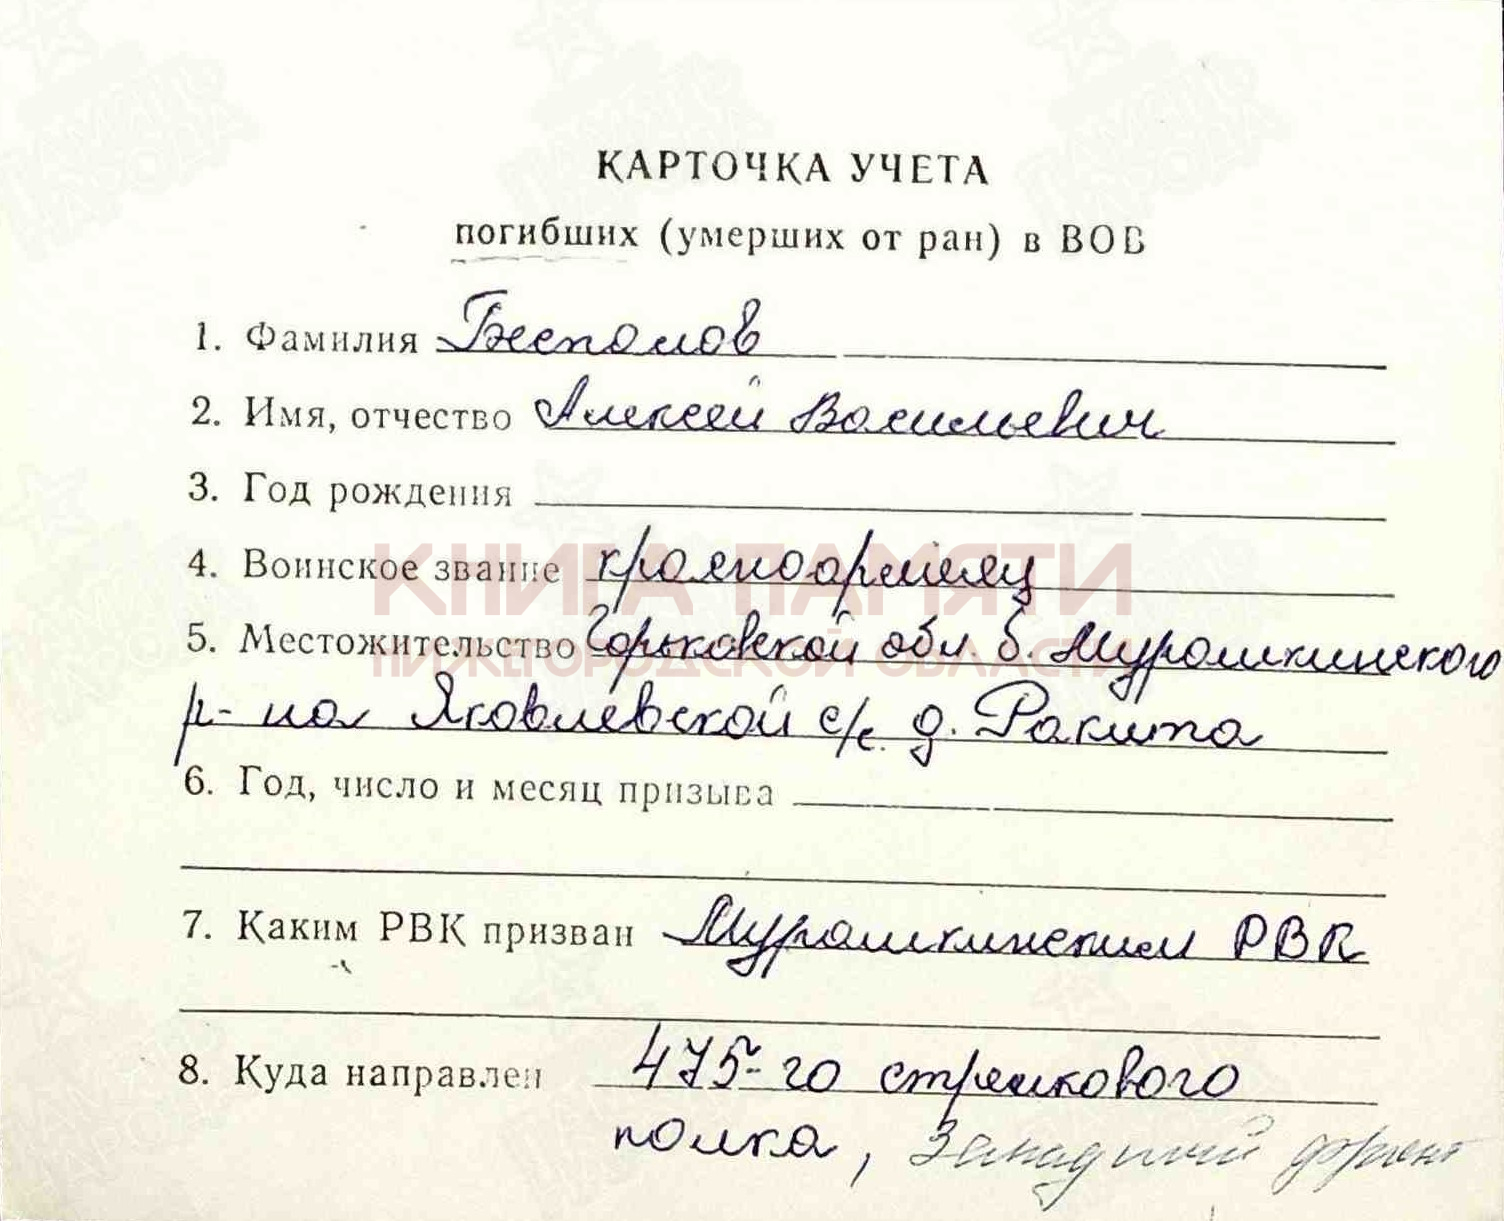 КАРТОЧКА УЧЕТА
погибших (умерших от ран) в ВОВ
1. Фамилия Беспалов
2. Имя, отчество Алексей Васильевич
3. Год рождения
4. Воинское звание красноармеец
КНИГА ПАМЯТИ
5. Местожительство Горьковской обл Б. Мурашкинского
НИЖЕГОРОДСКОЙ ОБЛАСТИ
р-на Яковлевской с/с. д. Ракита
6. Год, число и месяц призыва
7. Каким РВК призван Мурашкинским РВК
8. Куда направлен 475-го стрелкового
полка, Западный фронт